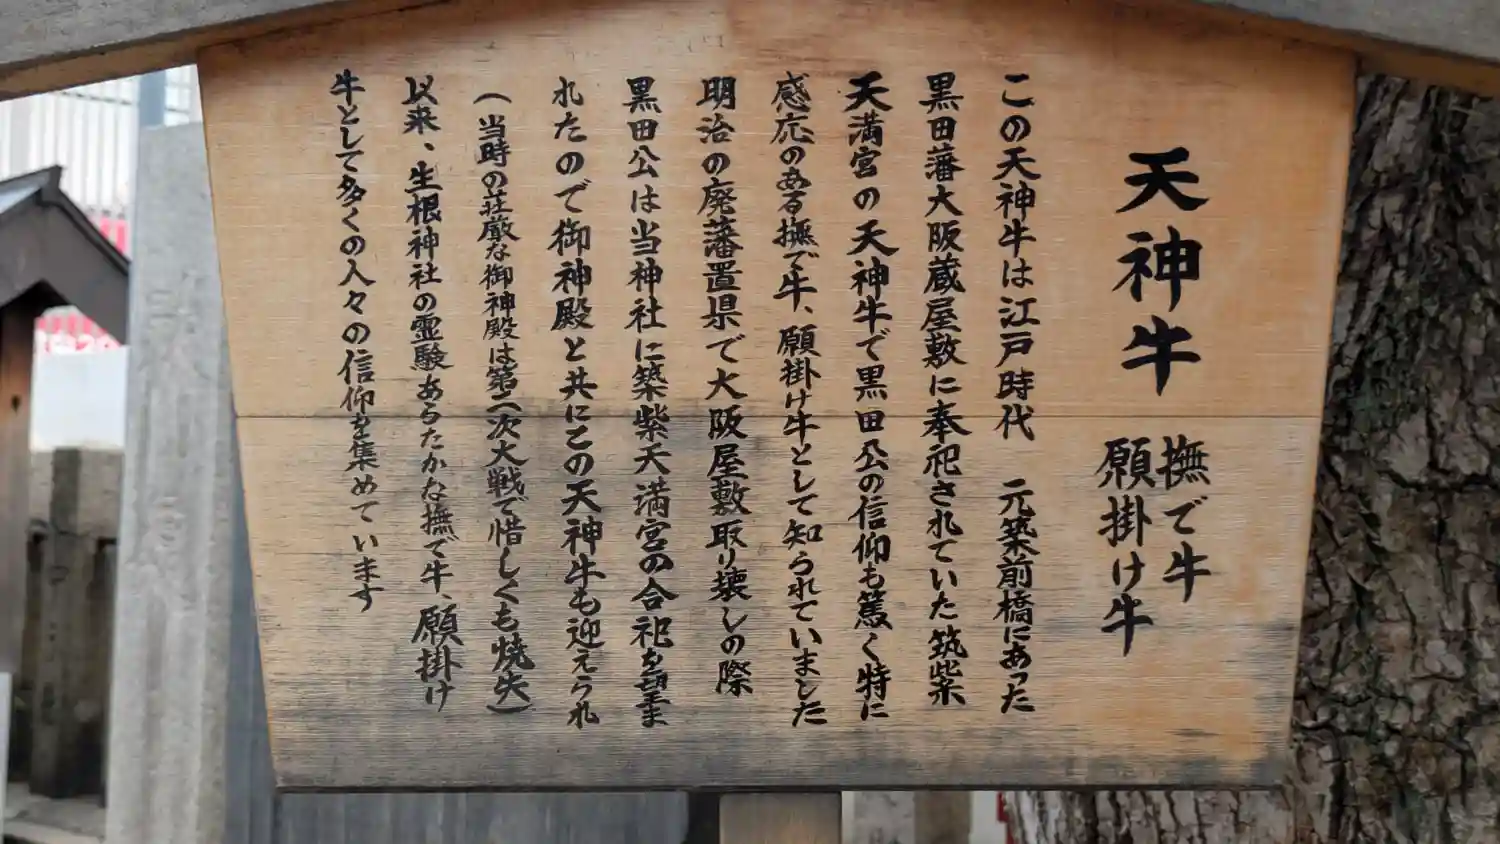 天神牛
撫で牛
願掛け牛
この天神牛は江戸時代　元築前橋にあった
黒田藩大阪蔵屋敷に奉祀されていた筑紫
天満宮の天神牛で黒田公の信仰も篤く特に
感応のある撫で牛、願掛け牛として知られていました
明治の廃藩置県で大阪屋敷取り壊しの際
黒田公は当神社に築紫天満宮の合祀を望ま
れたので御神殿と共にこの天神牛も迎えられ
（当時の荘厳な御神殿は第二次大戦で惜しくも焼失）
以来、生根神社の霊験あらたかな撫で牛、願掛け
牛として多くの人々の信仰を集めています